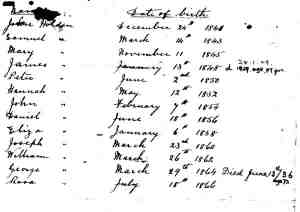 Name Date of birth
John December 24th 1840
Samuel " March 14th 1843
Mary " November 11 1845
James " January 13th 1848 d. 26.1.09.
Peter " June 2nd 1850
Hannah " May 12th 1852
John " February 7th 1854
Daniel " June 18th 1856
Eliza " January 6th 1858
Joseph " March 23rd 1860
William " March 26 1862
George " March 29th 1864 Died June 13th/36
Rosa " July 18th 1866